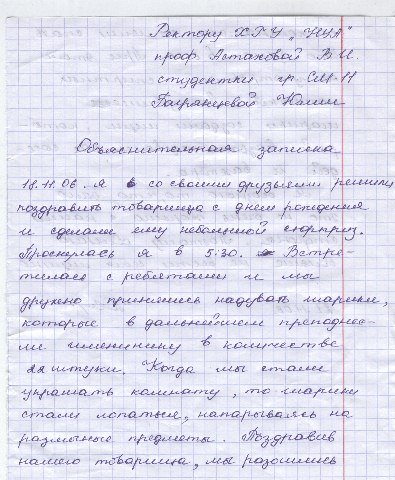 Ректору ХГУ „НУА"
проф. Астаховой В.И.
студентки гр. СМ-11
Баграйцевой Юлии
Объяснительная записка
18.11.06. я со своими друзьями решили
поздравить товарища с днем рождения
и сделать ему небольшой сюрприз.
Проснулась я в 5:30. Встре-
тилась с ребятами и мы
дружно принялись надувать шарики,
которые в дальнейшем преподнес-
ли имениннику в количестве
22 штуки. Когда мы стали
украшать комнату, то шарики
стали лопаться, напарываясь на
различные предметы. Поздравив
нашего товарища, мы разошлись